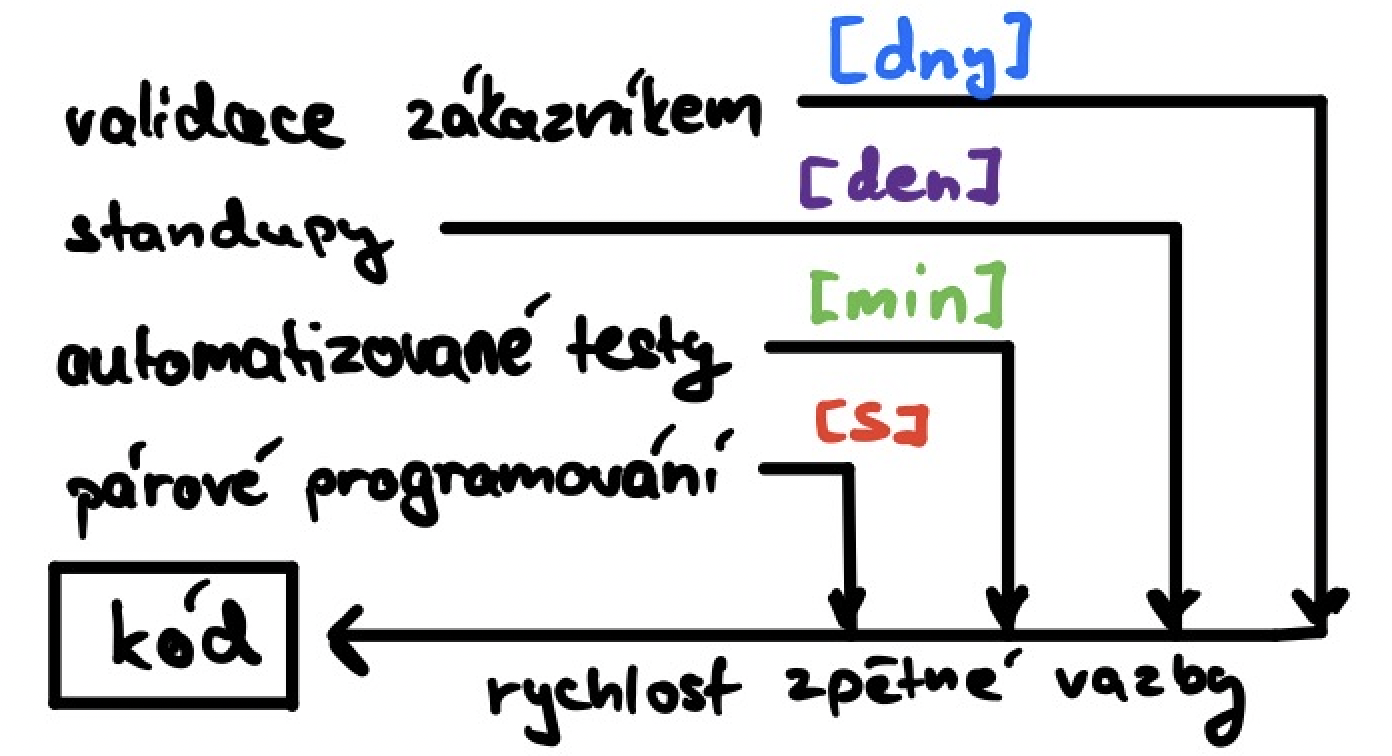 [dny]
validace zákazníkem
[den]
standupy
[min]
automatizované testy
[s]
párové programování
kód
rychlost zpětné vazby